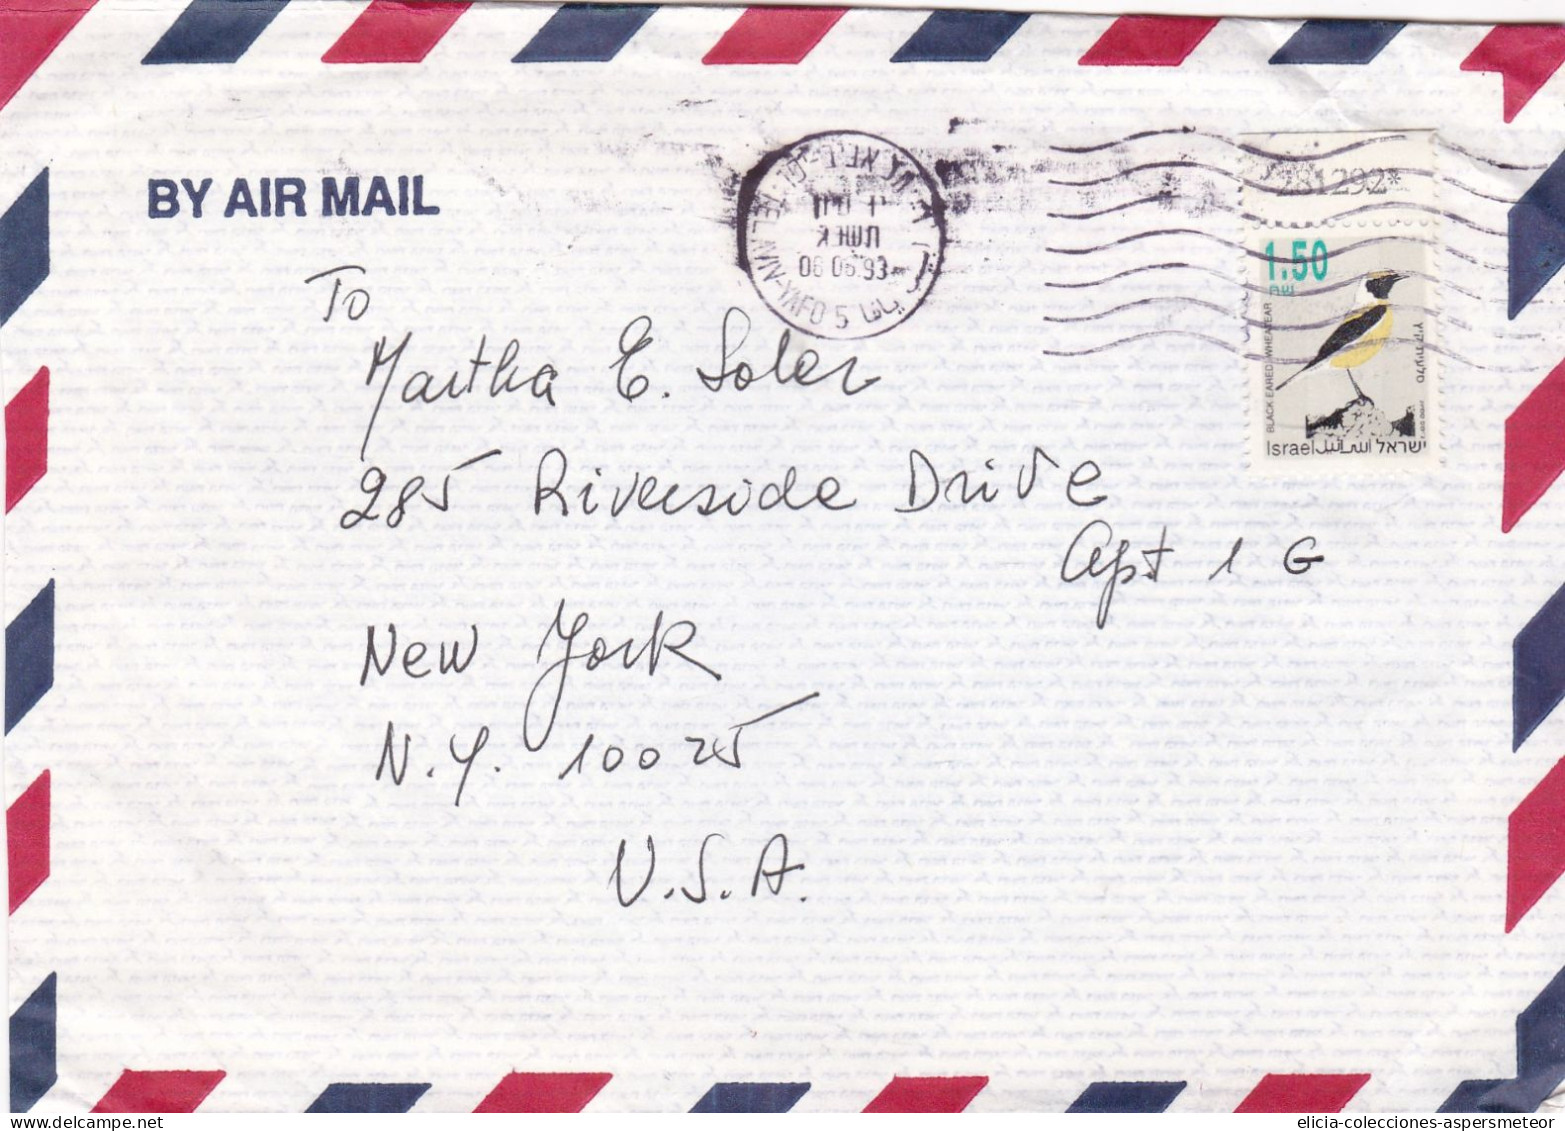 BY AIR MAIL
TEL AVIV-YAFO 5
תשנ״ג
06 06.93
281292*
1.50
שח
BLACK EARED WHEATEAR
Israel اسرائيل ישראל
To
Martha E. Soler
285 Riverside Drive
Apt 1 G
New York
N.Y. 10025
U.S.A.
delcampe.net
elicia-colecciones-aspersmeteor